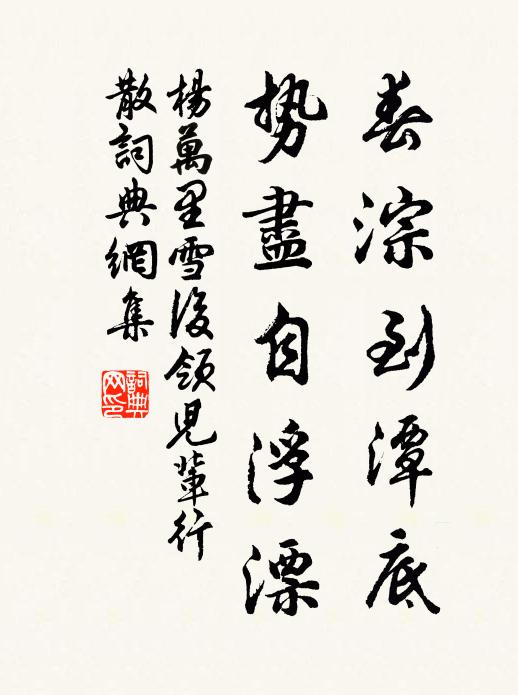 舂淙到潭底
势盡自浮漂
楊萬里雪後領兒輩行
散詞典網集
詞典
网印